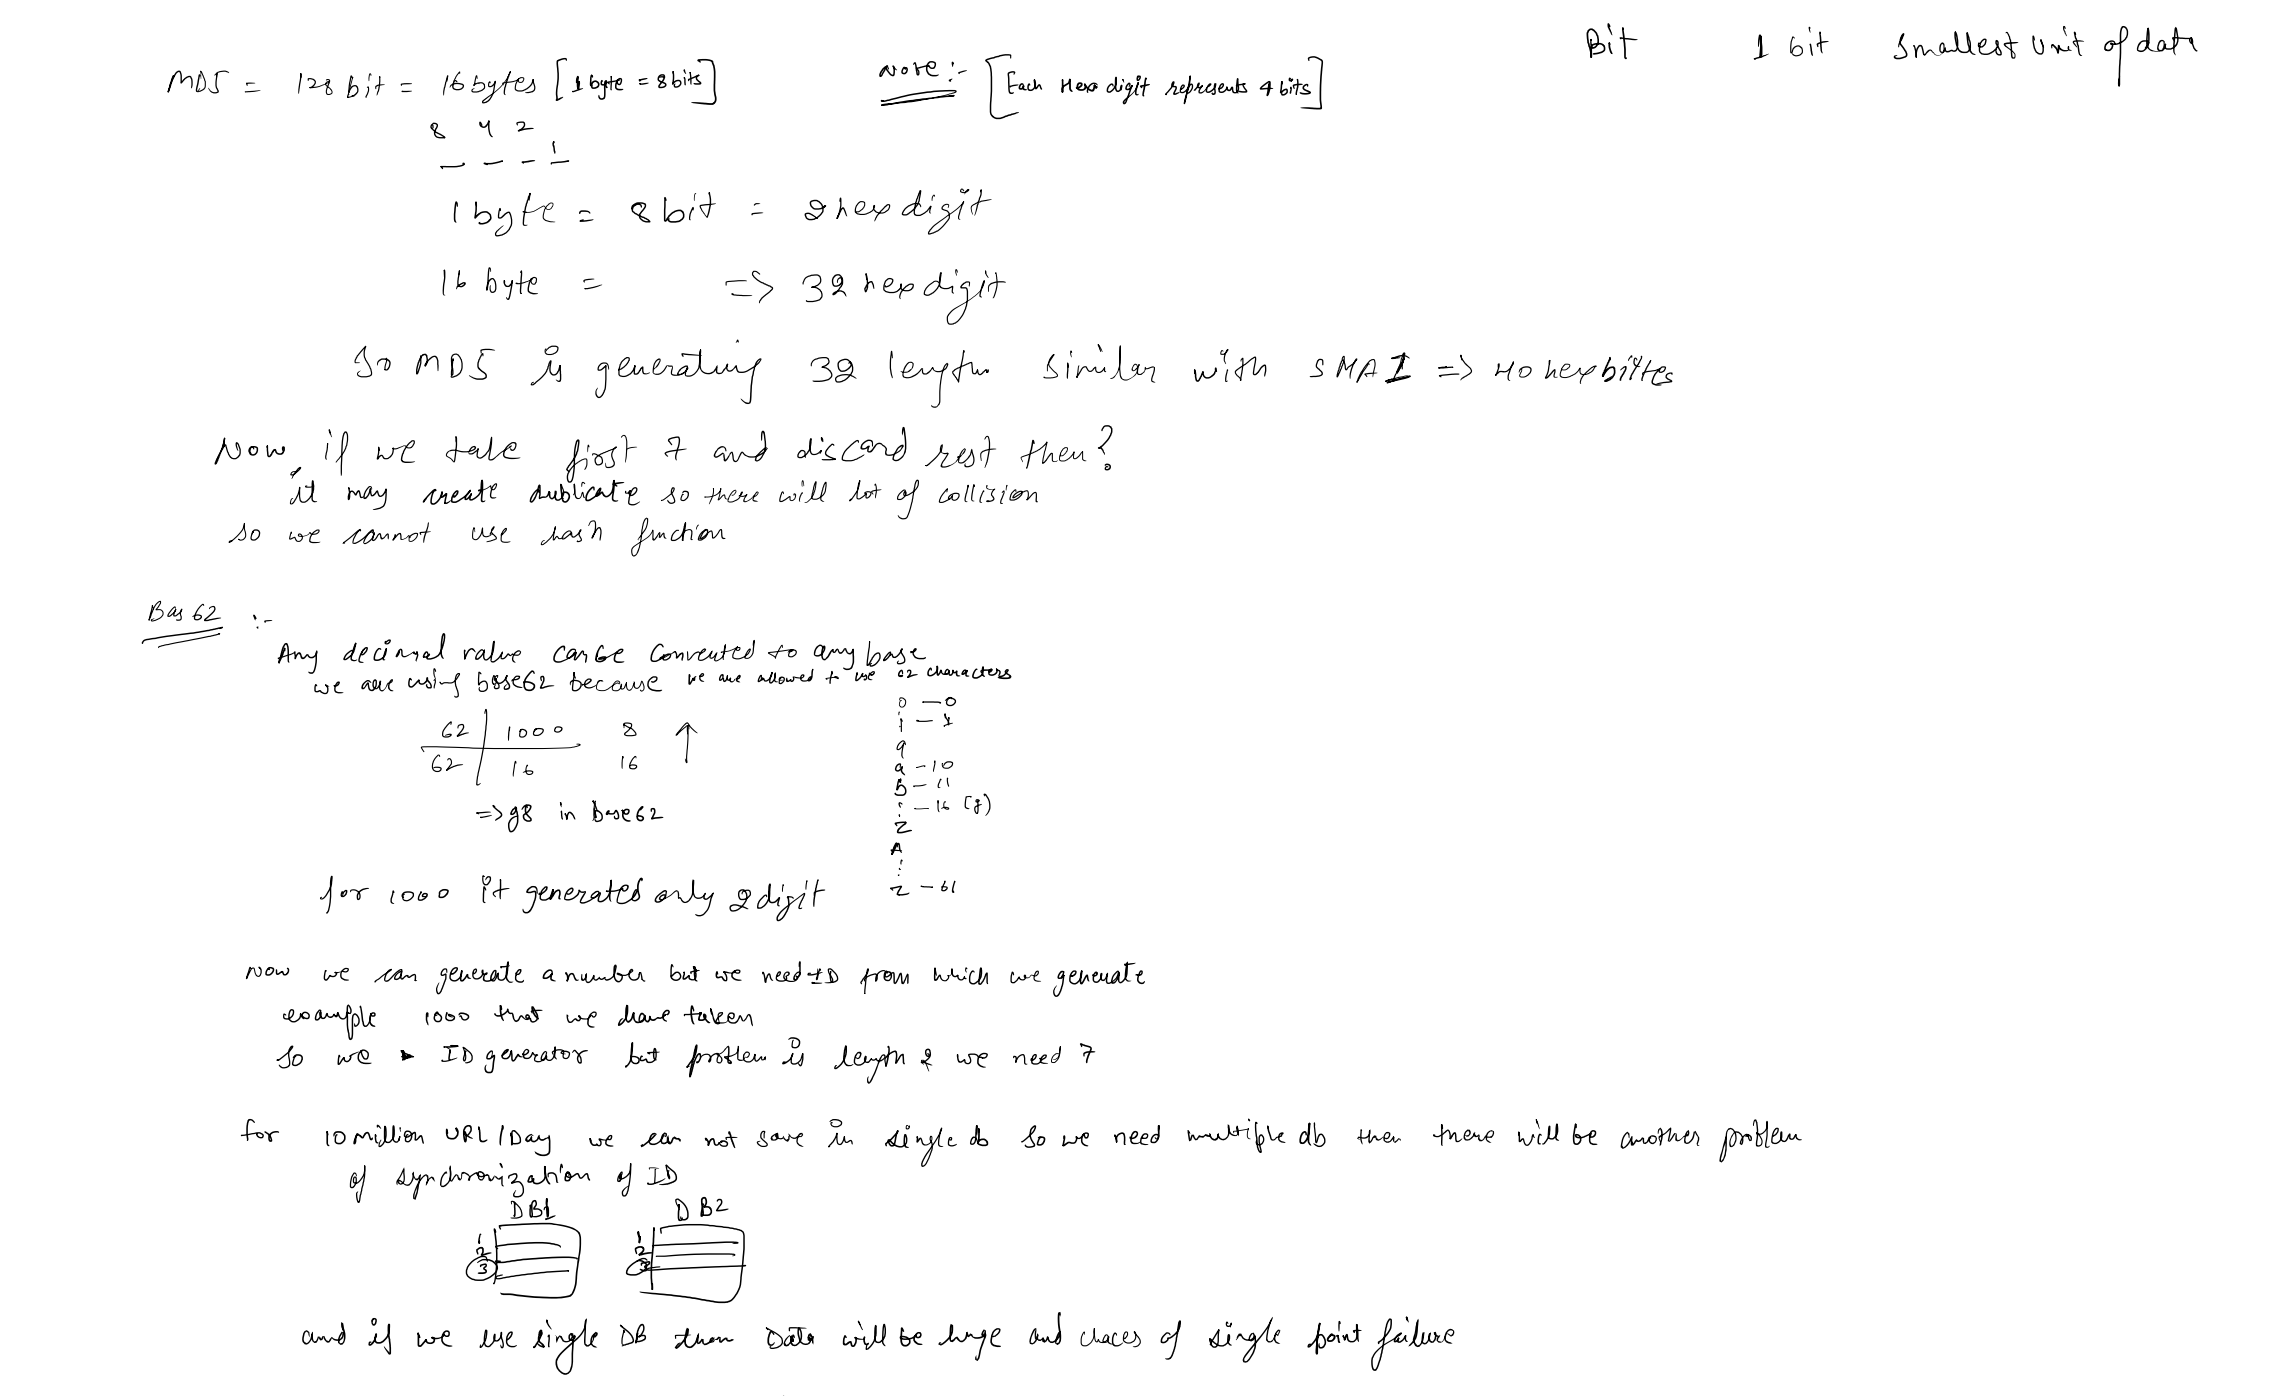 Bit 1 bit Smallest Unit of data
MD5 = 128 bit = 16 bytes [1 byte = 8 bits] Note :- [Each Hex digit represents 4 bits]
8 4 2
_ _ _ 1
1 byte = 8 bit = 2 hex digit
16 byte = => 32 hex digit
So MD5 is generating 32 length similar with SHA1 => 40 hexbittes
Now if we take first 7 and discard rest then?
it may create dublicate so there will lot of collision
so we cannot use hash function
Bas 62 :-
Any decimal value can be converted to any base
we are using base62 because we are allowed t use 62 characters
0 - 0
62 | 1000 8 ↑ 1 - 1
9
62 | 16 16 a - 10
b - 11
=> g8 in base62 : - 16 (g)
z
A
:
for 1000 it generated only 2 digit z - 61
Now we can generate a number but we need ID from which we generate
example 1000 that we have taken
So we ID generator but problem is length 2 we need 7
for 10 million URL/Day we can not save in single db so we need multiple db then there will be another problem
of synchronization of ID
DB1 DB2
1 1
2 2
3 3
and if we use single DB then Data will be huge and chaces of single point failure